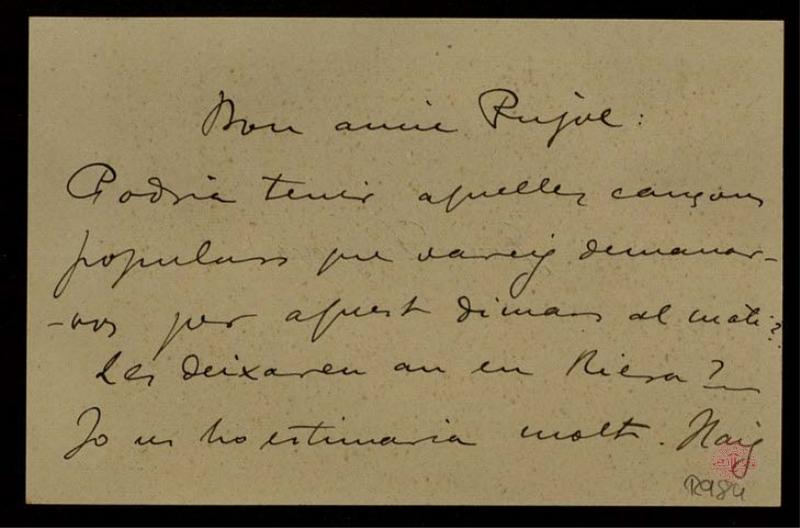 Bon amic Pujol:
Podria tenir aquelles cançons
populars que vareig demanar-
-vos per aquest dimars al matí?
Les deixareu an en Riera?
Jo us ho estimaria molt. Haig
R984